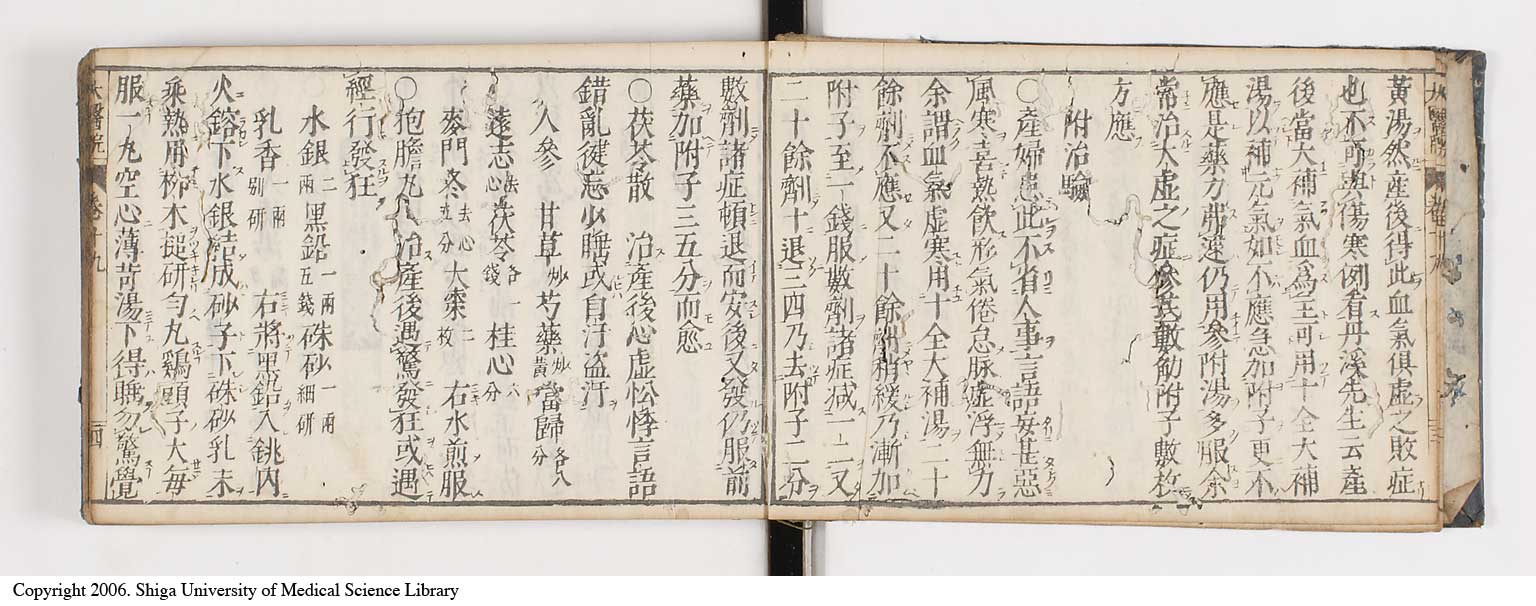 黃湯然産後得此血氣俱虛之敗症
也不可與傷寒例看丹溪先生云產
後當大補氣血爲主可用十全大補
湯以補元氣如不應急加附子更不
應是藥力弗速仍用參附湯多服余
常治大虛之症參芪數觔附子數枚
方應
附治驗
○產婦患此不省人事言語妄甚惡
風寒喜熱飲形氣倦怠脉虛浮無力
余謂血氣虛寒用十全大補湯二十
餘劑不應又二十餘劑稍緩乃漸加
附子至一錢服數劑諸症減一二又
二十餘劑十退三四乃去附子二分
數劑諸症頓退而安後又發仍服前
藥加附子三五分而愈
○茯苓散 治產後心虛忪悸言語
錯亂健忘少睡或自汗盜汗
人參 甘草炒 芍藥炒黃 當歸各八分
遠志去心 茯苓各一錢 桂心六分
麥門冬去心五分 大棗二枚 右水煎服
○抱膽丸 治產後遇驚發狂或遇
經行發狂
水銀二兩 黑鉛一兩五錢 硃砂一兩細研
乳香一兩別研 右將黑鉛入銚內
火鎔下水銀結成砂子下硃砂乳末
乘熱用柳木搥研勻丸鷄頭子大每
服一丸空心薄荷湯下得睡勿驚覺
太醫院 卷十九 四
Copyright 2006. Shiga University of Medical Science Library